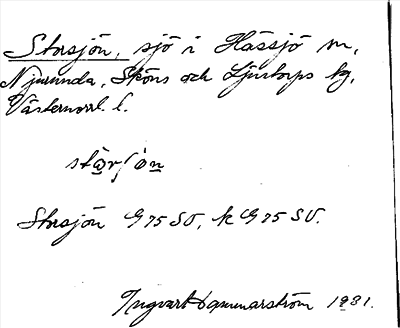 Storsjön, sjö i Hässjö m,
Njurunda, Sköns och Ljustorps tg,
Västernorrl. l.
Storsjön G75 SO, k G75 SV.
Ingvar Hammarström 1931.